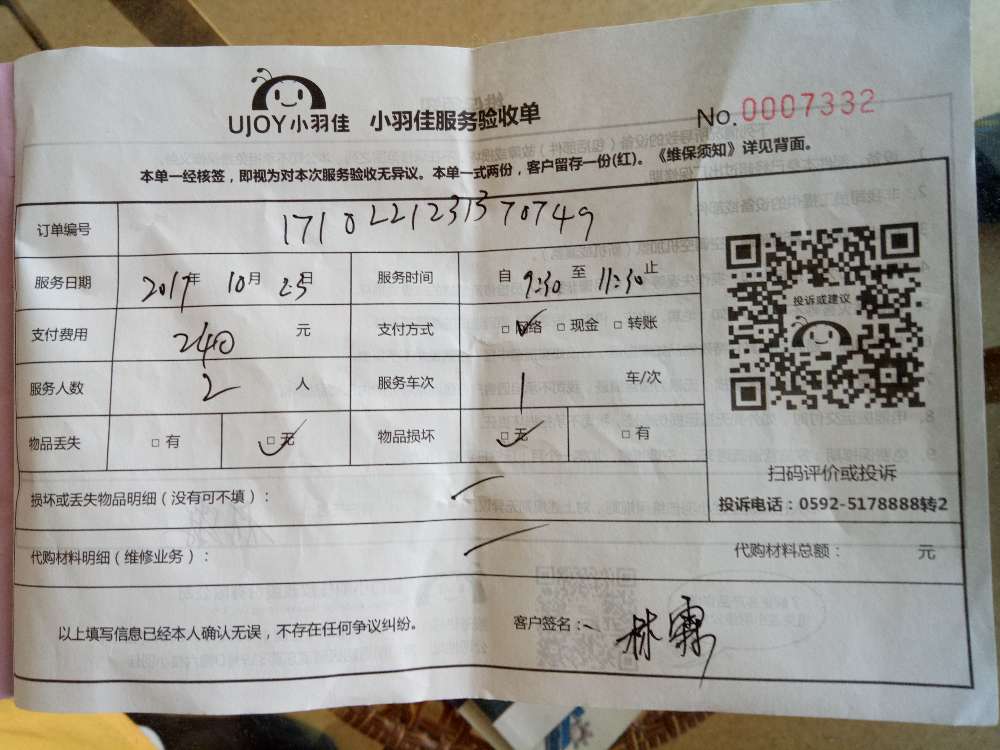 UJOY小羽佳 小羽佳服务验收单
No.0007332
本单一经核签，即视为对本次服务验收无异议。本单一式两份，客户留存一份(红)。《维保须知》详见背面。
订单编号 1710221231370749
服务日期 2017年 10月 25日 服务时间 自 9:30 至 11:30 止
支付费用 240 元 支付方式 □网络 □现金 □转账
投诉或建议
服务人数 2 人 服务车次 1 车/次
物品丢失 □有 □无 物品损坏 □无 □有
扫码评价或投诉
损坏或丢失物品明细（没有可不填）：
投诉电话：0592-5178888转2
代购材料明细（维修业务）： 代购材料总额： 元
以上填写信息已经本人确认无误，不存在任何争议纠纷。 客户签名： 林霖